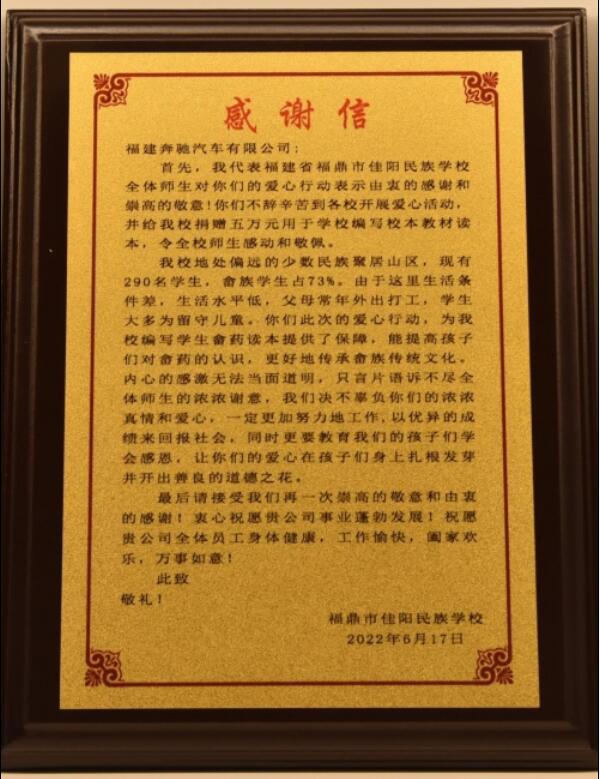 感谢信
福建奔驰汽车有限公司:
首先，我代表福建省福鼎市佳阳民族学校
全体师生对你们的爱心行动表示由衷的感谢和
崇高的敬意!你们不辞辛苦到各校开展爱心活动，
并给我校捐赠五万元用于学校编写校本教材读
本，令全校师生感动和敬佩。
我校地处偏远的少数民族聚居山区，现有
290名学生，畲族学生占73%。由于这里生活条
件差，生活水平低，父母常年外出打工，学生
大多为留守儿童。你们此次的爱心行动，为我
校编写学生畲药读本提供了保障，能提高孩子
们对畲药的认识，更好地传承畲族传统文化。
内心的感激无法当面道明，只言片语诉不尽全
体师生的浓浓谢意，我们决不辜负你们的浓浓
真情和爱心，一定更加努力地工作,以优异的成
绩来回报社会，同时更要教育我们的孩子们学
会感恩，让你们的爱心在孩子们身上扎根发芽
并开出善良的道德之花。
最后请接受我们再一次崇高的敬意和由衷
的感谢！衷心祝愿贵公司事业蓬勃发展！祝愿
贵公司全体员工身体健康，工作愉快，阖家欢
乐，万事如意！
此致
敬礼！
福鼎市佳阳民族学校
2022年6月17日